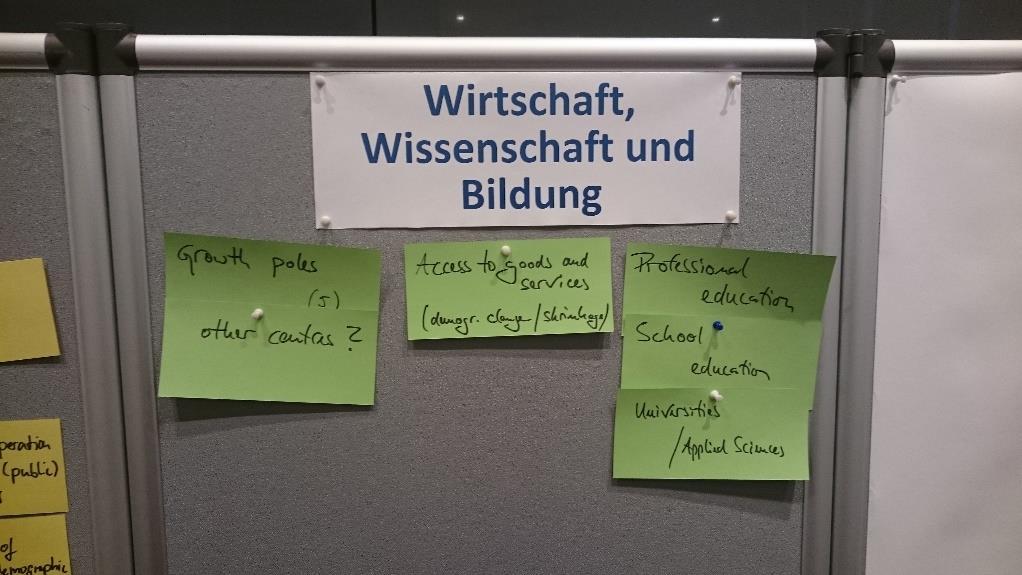 Wirtschaft,
Wissenschaft und
Bildung
Growth poles
(5)
other centres?
Access to goods and
services
(demogr. change/shrinkage)
Professional
education
School
education
Universities
/Applied Sciences
peration
(public)
s
of
demographic